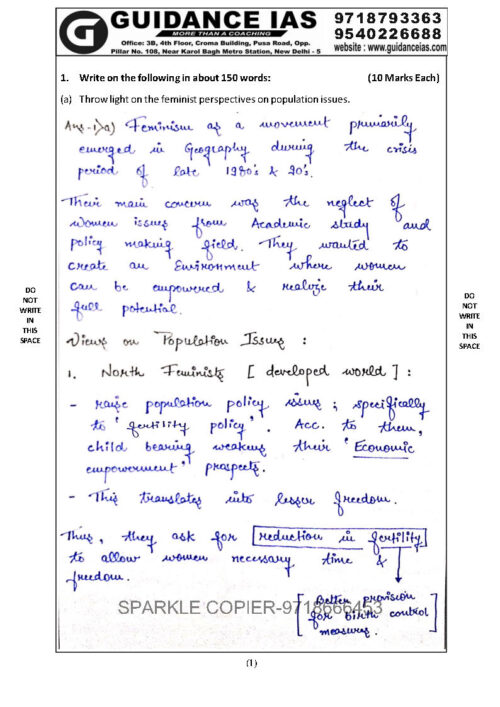 GUIDANCE IAS
MORE THAN A COACHING
Office: 3B, 4th Floor, Croma Building, Pusa Road, Opp.
Pillar No. 108, Near Karol Bagh Metro Station, New Delhi - 5
9718793363
9540226688
website : www.guidanceias.com
1. Write on the following in about 150 words: (10 Marks Each)
(a) Throw light on the feminist perspectives on population issues.
Ans-1)a) Feminism as a movement primarily
emerged in Geography during the crisis
period of late 1980's & 90's.
Their main concern was the neglect of
women issues from Academic study and
policy making field. They wanted to
create an Environment where women
can be empowered & realize their
full potential.
DO
NOT
WRITE
IN
THIS
SPACE
DO
NOT
WRITE
IN
THIS
SPACE
Views on Population Issues :
1. North Feminists [ developed world ] :
- raise population policy issues ; specifically
to 'fertility policy'. Acc. to them,
child bearing weakens their 'Economic
empowerment' prospects.
- This translates into lesser freedom.
Thus, they ask for reduction in fertility
to allow women necessary time &
freedom.
[ Better provision
for birth control
measures. ]
SPARKLE COPIER-9718666453
(1)